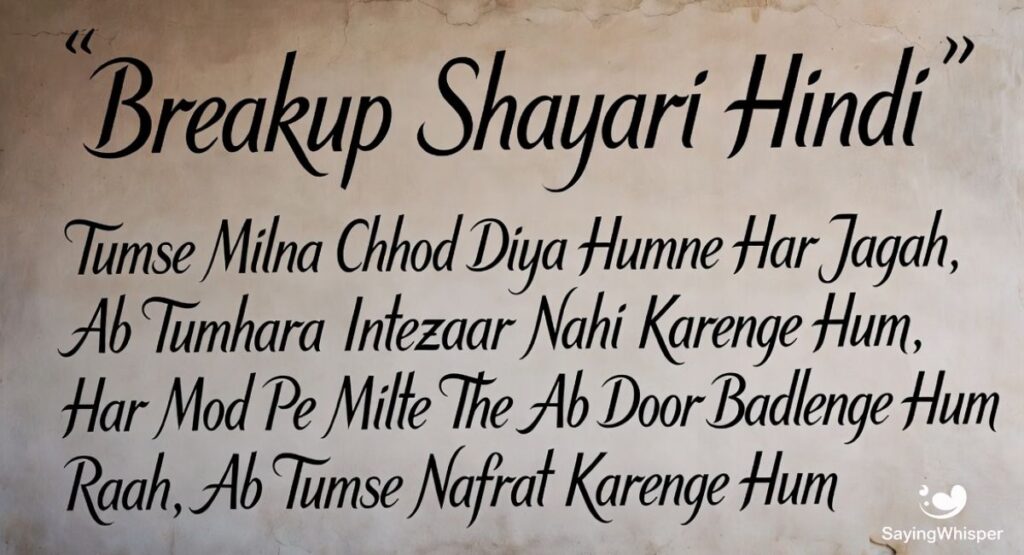 “Breakup Shayari Hindi”
Tumse Milna Chhod Diya Humne Har Jagah,
Ab Tumhara Intezaar Nahi Karenge Hum,
Har Mod Pe Milte The Ab Door Badlenge Hum
Raah, Ab Tumse Nafrat Karenge Hum
SayingWhisper